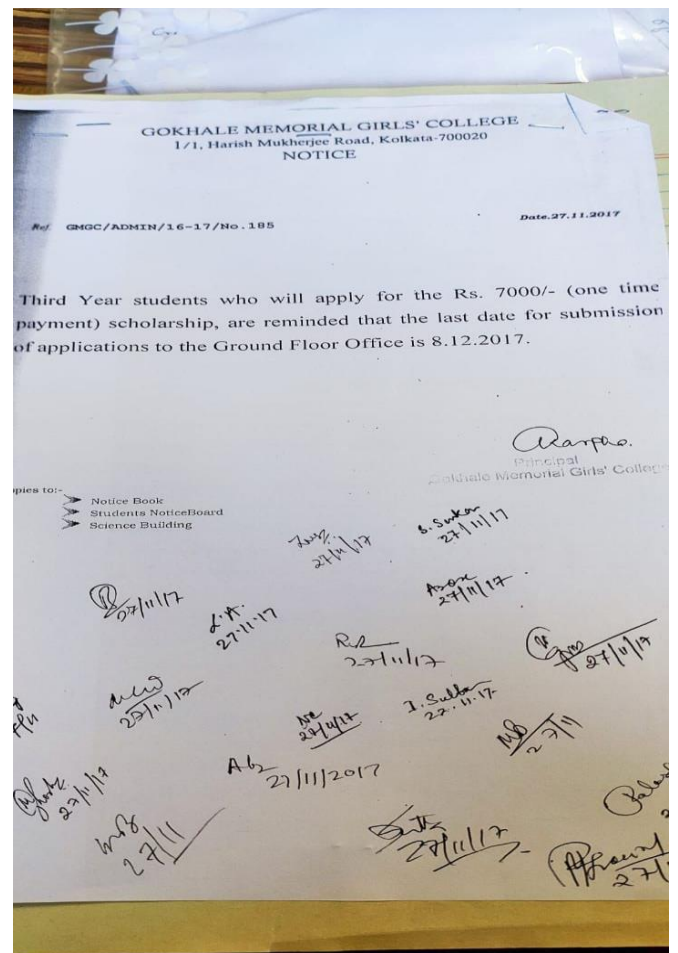 GOKHALE MEMORIAL GIRLS' COLLEGE
1/1, Harish Mukherjee Road, Kolkata-700020
NOTICE
Ref. GMGC/ADMIN/16-17/No.185
Date.27.11.2017
Third Year students who will apply for the Rs. 7000/- (one time
payment) scholarship, are reminded that the last date for submission
of applications to the Ground Floor Office is 8.12.2017.
Principal
Gokhale Memorial Girls' College
opies to:-
Notice Book
Students NoticeBoard
Science Building
27/11/17
S. Sarkar
27/11/17
27/11/17
27/11/17
L.A.
27.11.17
27/11/17
27/11/17
27/11/17
27/11/17
27.11.17
27/11
27/11/2017
27/11/17
27/11
27/11/17